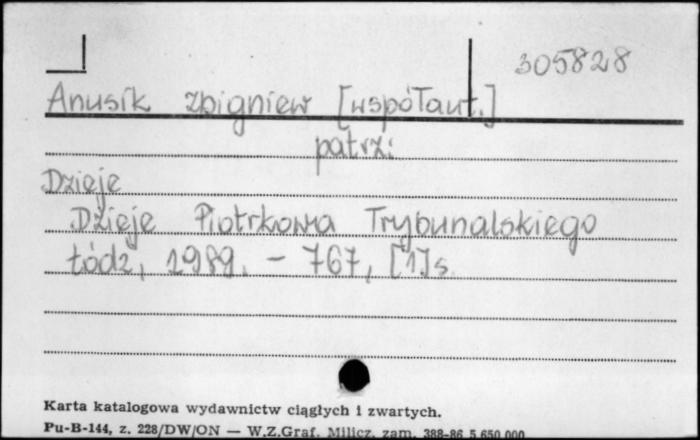 305828
Anusik Zbigniew [współaut.]
patrz:
Dzieje
Dzieje Piotrkowa Trybunalskiego
Łódź, 1989. - 767, [1] s.
Karta katalogowa wydawnictw ciągłych i zwartych.
Pu-B-144, z. 228/DW/ON — W.Z.Graf. Milicz, zam. 388-86 5.650.000